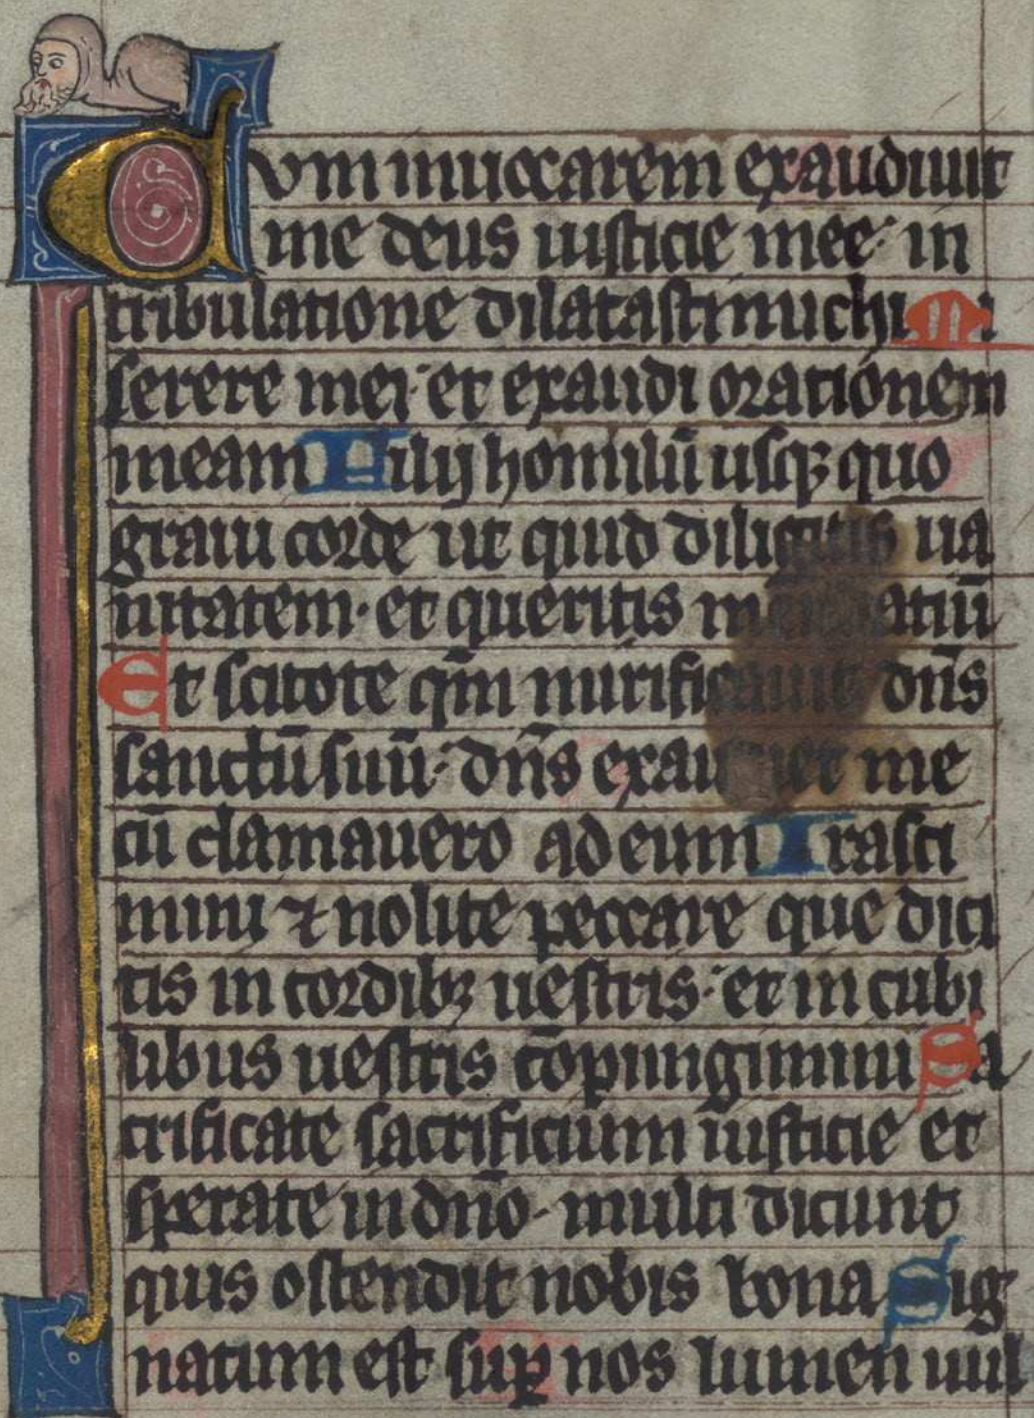 Dum inuocarem exaudiuit
me deus iusticie mee· in
tribulatione dilatasti michi Mi
serere mei· et exaudi orationem
meam Filij hominū usqꝫ quo
graui corde ut quid diligitis ua
nitatem· et queritis mendatiū
Et scitote qm̄ mirificauit dn̄s
sanctū suū· dn̄s exaudiet me
cū clamauero ad eum Irasci
mini ⁊ nolite peccare que dici
tis in cordibꝫ uestris· et in cubi
libus uestris cōpungimini Sa
crificate sacrificium iusticie et
sperate in dn̄o· multi dicunt
quis ostendit nobis bona Sig
natum est suꝑ nos lumen uul